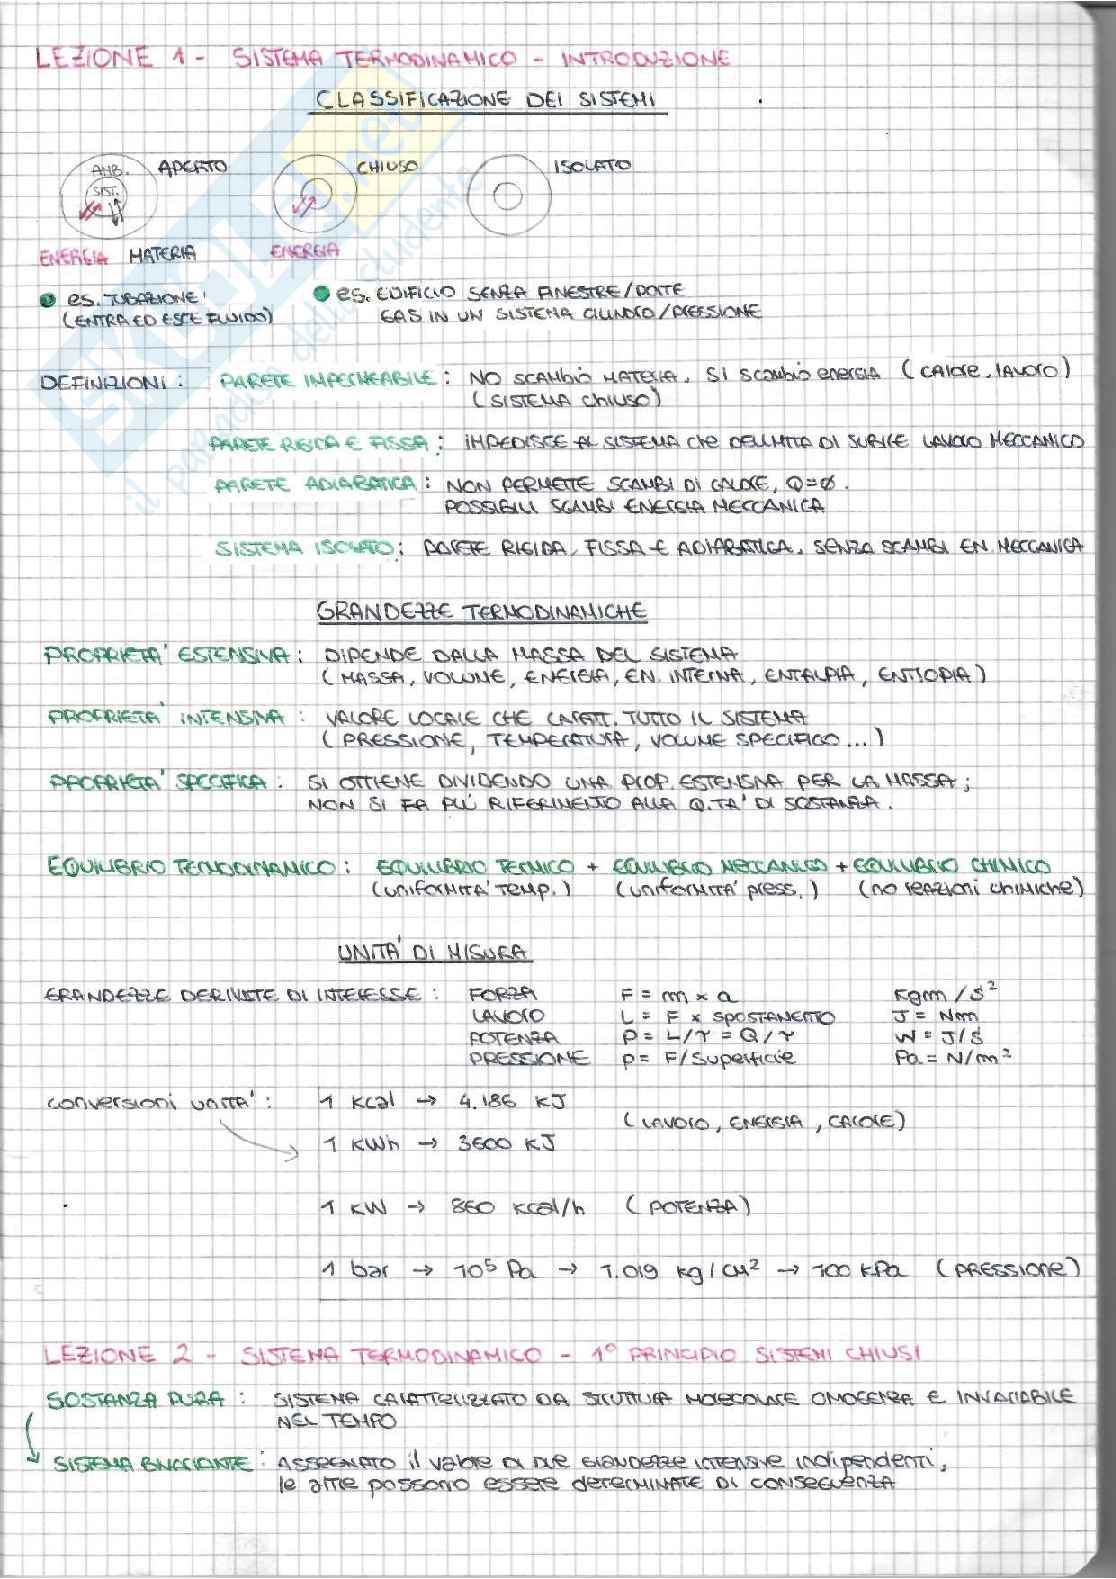 LEZIONE 1 - SISTEMA TERMODINAMICO - INTRODUZIONE
CLASSIFICAZIONE DEI SISTEMI
AMB. APERTO CHIUSO ISOLATO
SIST.
ENERGIA MATERIA ENERGIA
es. TUBAZIONE es. EDIFICIO SENZA FINESTRE/PORTE
(ENTRA ED ESCE FLUIDO) GAS IN UN SISTEMA CILINDRO/PRESSIONE
DEFINIZIONI: PARETE IMPERMEABILE: NO SCAMBIO MATERIA, SI SCAMBIO ENERGIA (CALORE, LAVORO)
(SISTEMA CHIUSO)
PARETE RIGIDA E FISSA: IMPEDISCE AL SISTEMA CHE DELIMITA DI SUBIRE LAVORO MECCANICO
PARETE ADIABATICA: NON PERMETTE SCAMBI DI CALORE, Q=∅.
POSSIBILI SCAMBI ENERGIA MECCANICA
SISTEMA ISOLATO: PARETE RIGIDA, FISSA E ADIABATICA, SENZA SCAMBI EN. MECCANICA
GRANDEZZE TERMODINAMICHE
PROPRIETA' ESTENSIVA: DIPENDE DALLA MASSA DEL SISTEMA
(MASSA, VOLUME, ENERGIA, EN. INTERNA, ENTALPIA, ENTROPIA)
PROPRIETA' INTENSIVA: VALORE LOCALE CHE CARATT. TUTTO IL SISTEMA
(PRESSIONE, TEMPERATURA, VOLUME SPECIFICO...)
PROPRIETA' SPECIFICA: SI OTTIENE DIVIDENDO UNA PROP. ESTENSIVA PER LA MASSA;
NON SI FA PIÙ RIFERIMENTO ALLA Q.TA' DI SOSTANZA.
EQUILIBRIO TERMODINAMICO: EQUILIBRIO TERMICO + EQUILIBRIO MECCANICO + EQUILIBRIO CHIMICO
(UNIFORMITA' TEMP.) (UNIFORMITA' press.) (no reazioni chimiche)
UNITA' DI MISURA
GRANDEZZE DERIVATE DI INTERESSE: FORZA F = m x a Kgm/s²
LAVORO L = F x SPOSTAMENTO J = Nm
POTENZA P = L/τ = Q/τ W = J/s
PRESSIONE p = F/Superficie Pa = N/m²
conversioni UNITA': 1 Kcal → 4.186 KJ
(LAVORO, ENERGIA, CALORE)
1 KWh → 3600 KJ
1 KW → 860 Kcal/h (POTENZA)
1 bar → 10⁵ Pa → 1.019 kg/cm² → 100 KPa (PRESSIONE)
LEZIONE 2 - SISTEMA TERMODINAMICO - 1° PRINCIPIO SISTEMI CHIUSI
SOSTANZA PURA: SISTEMA CARATTERIZZATO DA STRUTTURA MOLECOLARE OMOGENEA E INVARIABILE
NEL TEMPO
SISTEMA BIVARIANTE: ASSEGNATO il valore di DUE GRANDEZZE INTENSIVE indipendenti,
le altre possono essere determinate DI CONSEGUENZA